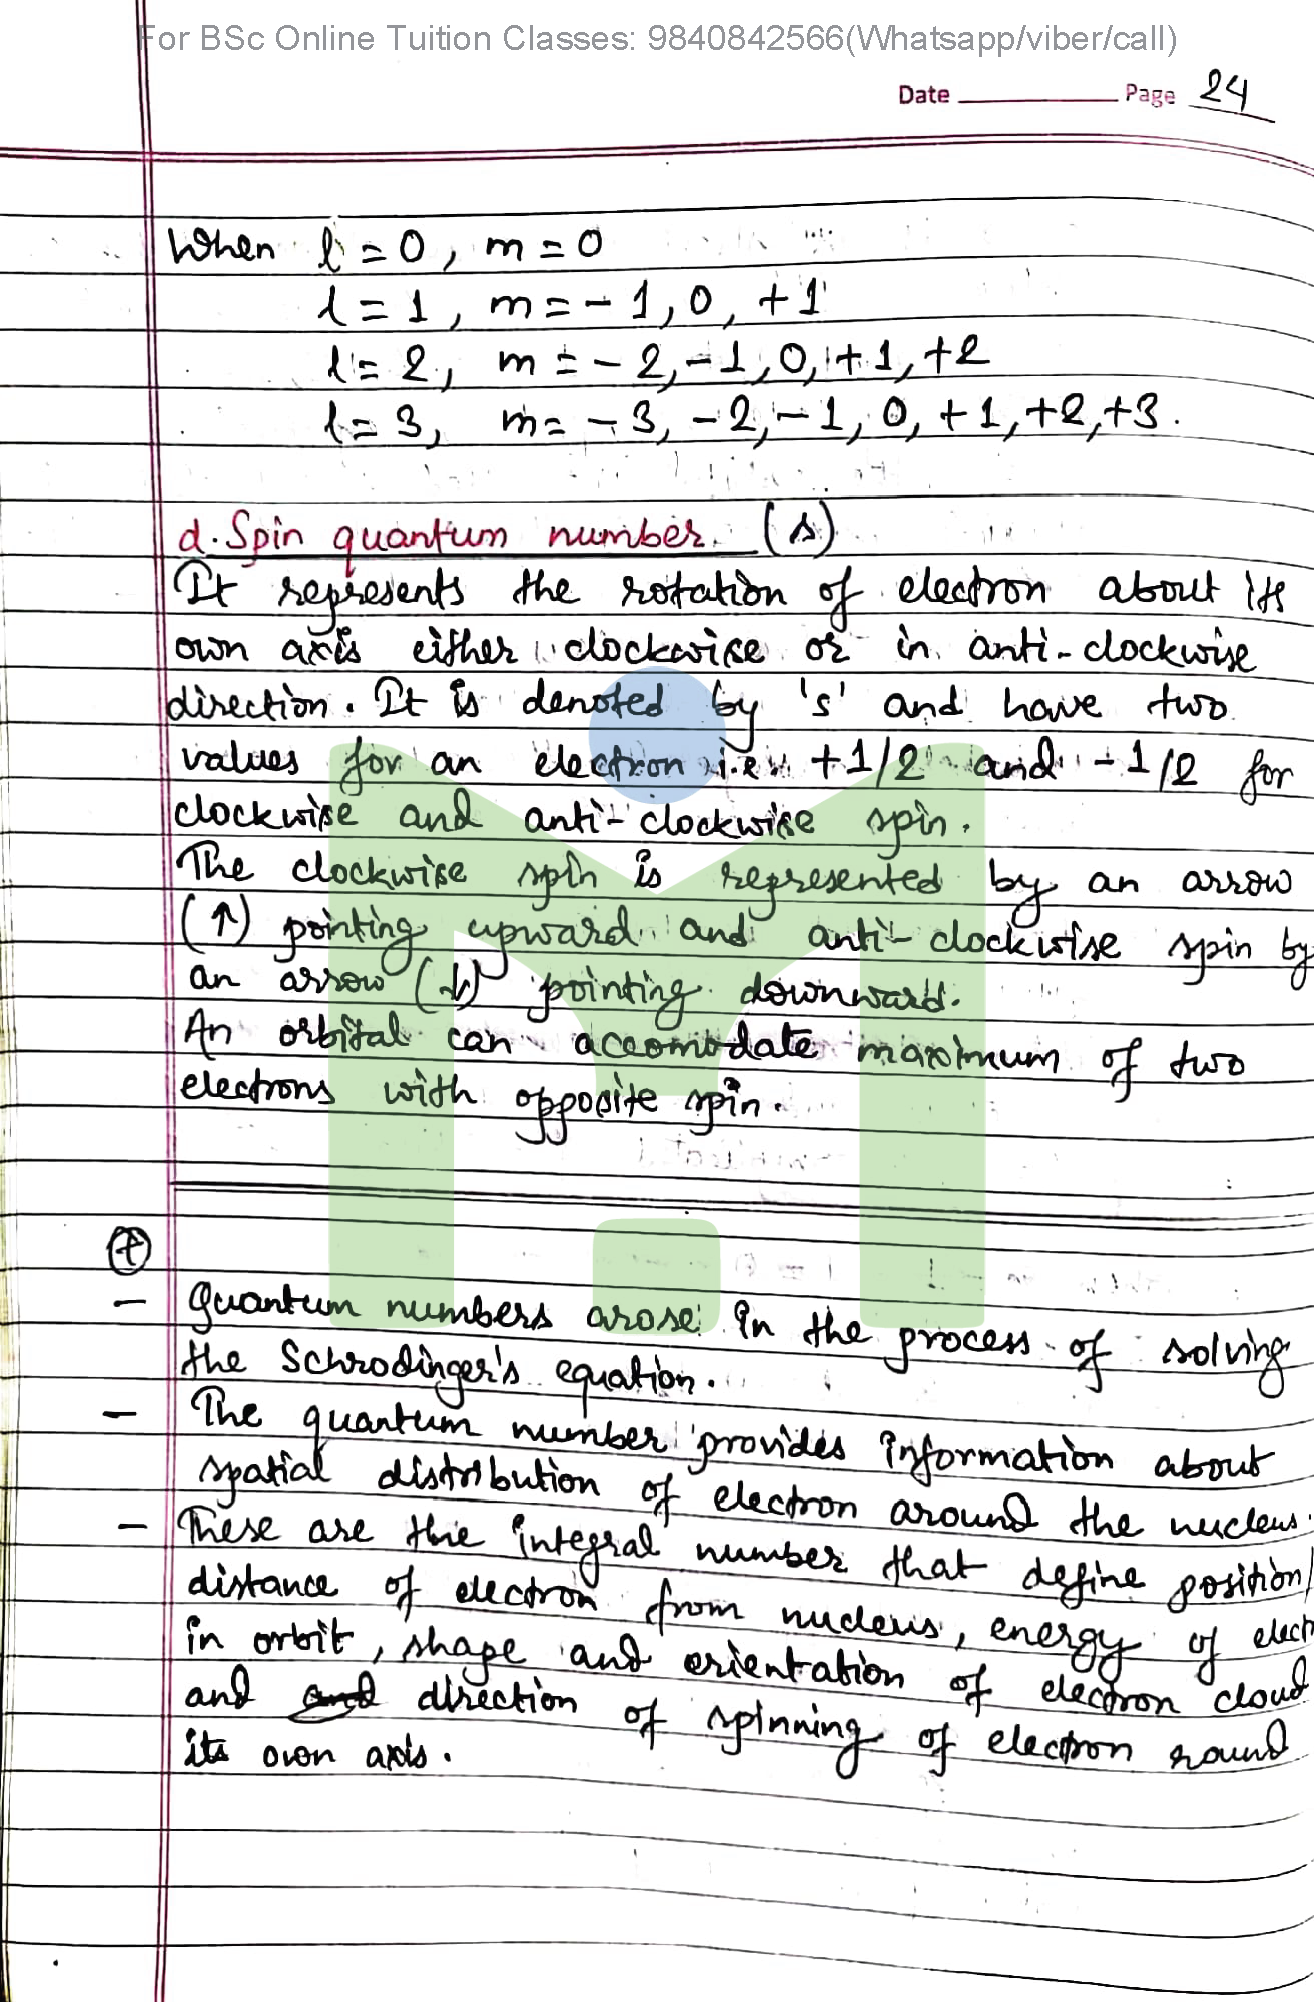 For BSc Online Tuition Classes: 9840842566(Whatsapp/viber/call)
Date Page 24
When l = 0, m = 0
l = 1, m = - 1, 0, +1
l = 2, m = - 2, -1, 0, +1, +2
l = 3, m = - 3, -2, -1, 0, +1, +2, +3.
d. Spin quantum number. (s)
It represents the rotation of electron about its
own axis either clockwise or in anti-clockwise
direction. It is denoted by 's' and have two
values for an electron i.e. +1/2 and -1/2 for
clockwise and anti-clockwise spin.
The clockwise spin is represented by an arrow
(↑) pointing upward and anti-clockwise spin by
an arrow (↓) pointing downward.
An orbital can accomodate maximum of two
electrons with opposite spin.
- Quantum numbers arose in the process of solving
the Schrodinger's equation.
- The quantum number provides information about
spatial distribution of electron around the nucleus.
- These are the integral number that define position/
distance of electron from nucleus, energy of elect
in orbit, shape and orientation of electron cloud
and direction of spinning of electron round
its own axis.